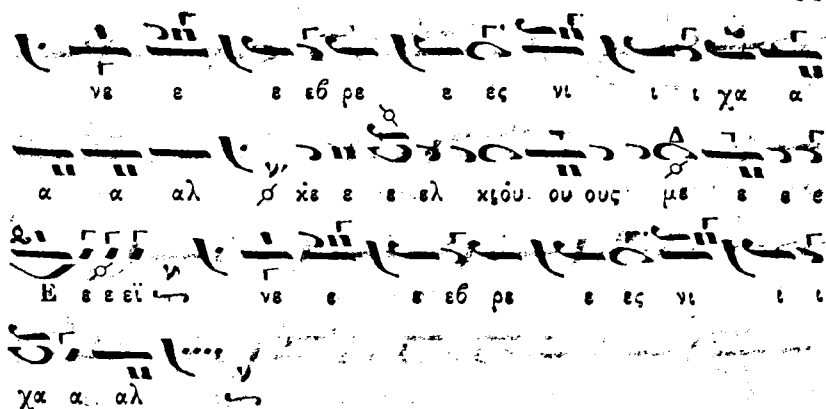 νε ε ε εβ ρε ε ες νι ι ι χα α
α α αλ κε ε ε ελ κιόυ ου ους με ε ε ε
Ε ε ε εϊ νε ε ε εβ ρε ε ες νι ι ι
χα α αλ